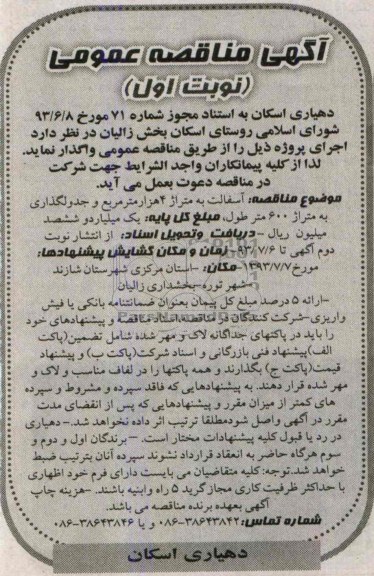 آگهی مناقصه عمومی
(نوبت اول)
دهیاری اسکان به استناد مجوز شماره ۷۱ مورخ ۹۳/۶/۸
شورای اسلامی روستای اسکان بخش زالیان در نظر دارد
اجرای پروژه ذیل را از طریق مناقصه عمومی واگذار نماید.
لذا از کلیه پیمانکاران واجد الشرایط جهت شرکت
در مناقصه دعوت بعمل می آید.
موضوع مناقصه: آسفالت به متراژ ۴هزارمترمربع و جدولگذاری
به متراژ ۶۰۰ متر طول، مبلغ کل پایه: یک میلیاردو ششصد
میلیون ریال -دریافت وتحویل اسناد: از انتشار نوبت
دوم آگهی تا ۹۳/۷/۶-زمان و مکان گشایش پیشنهادها:
مورخ۱۳۹۳/۷/۷-مکان: -استان مرکزی شهرستان شازند
-شهر توره-بخشداری زالیان
-ارائه ۵ درصد مبلغ کل پیمان بعنوان ضمانتنامه بانکی یا فیش
واریزی-شرکت کنندگان در مناقصه اسناد مناقصه و پیشنهادهای خود
را باید در پاکتهای جداگانه لاک و مهر شده شامل تضمین(پاکت
الف)پیشنهاد فنی بازرگانی و اسناد شرکت(پاکت ب) و پیشنهاد
قیمت(پاکت ج) بگذارند و همه پاکتها را در لفاف مناسب و لاک و
مهر شده قرار دهند. به پیشنهادهایی که فاقد سپرده و مشروط و سپرده
های کمتر از میزان مقرر و پیشنهادهایی که پس از انقضای مدت
مقرر در آگهی واصل شودمطلقا ترتیب اثر داده نخواهد شد.- دهیاری
در رد یا قبول کلیه پیشنهادات مختار است. - برندگان اول و دوم و
سوم هرگاه حاضر به انعقاد قرارداد نشوند سپرده آنان بترتیب ضبط
خواهد شد.توجه: کلیه متقاضیان می بایست دارای فرم خود اظهاری
با حداکثر ظرفیت کاری مجاز گرید ۵ راه وابنیه باشند. -هزینه چاپ
آگهی بعهده برنده مناقصه می باشد.
شماره تماس: ۳۸۶۴۳۸۴۲-۰۸۶ و یا ۳۸۶۴۳۸۴۶-۰۸۶
دهیاری اسکان